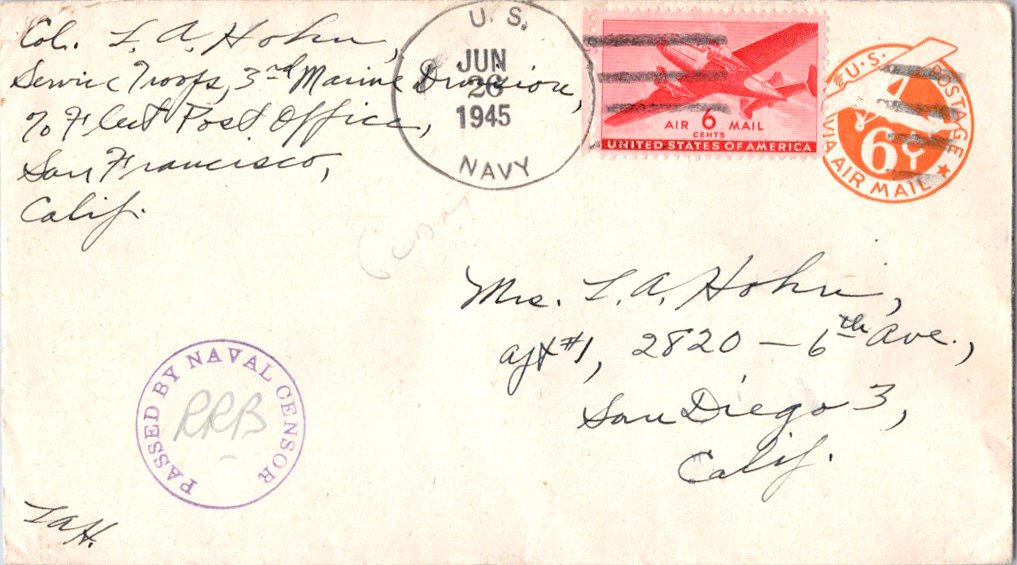 Col. L. A. Hohn,
Service Troops, 3rd Marine Division,
℅ Fleet Post Office,
San Francisco,
Calif.
U. S.
JUN
26
1945
NAVY
AIR 6 MAIL
CENTS
UNITED STATES OF AMERICA
U·S· POSTAGE
6
VIA AIR MAIL
Mrs. L. A. Hohn,
apt #1, 2820 — 6th Ave.,
San Diego 3,
Calif.
PASSED BY NAVAL CENSOR
RRB
LAH.